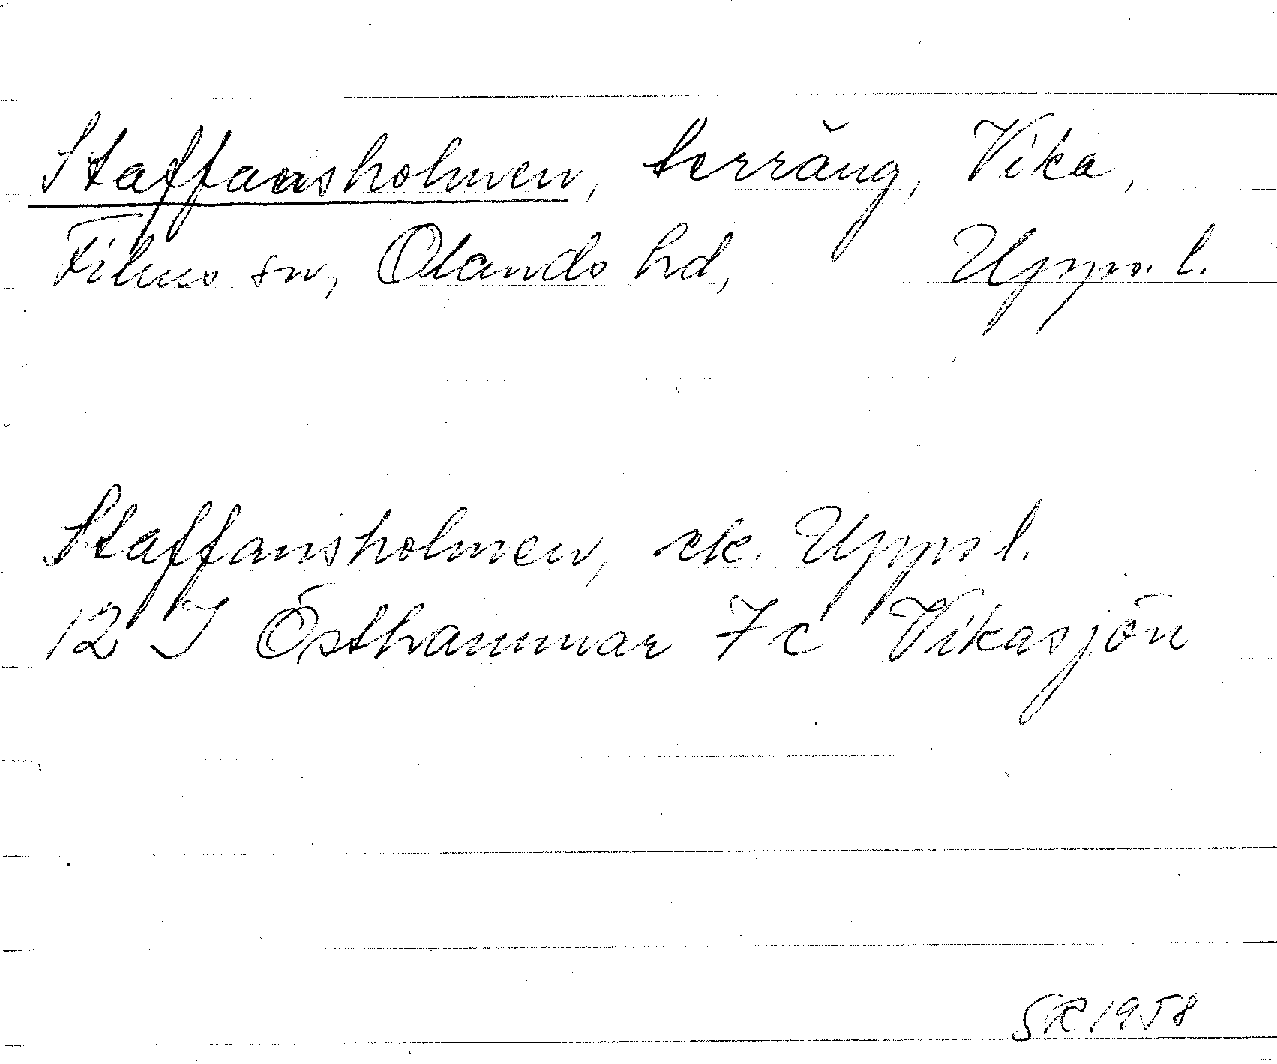 Staffansholmen, terräng, Vika,
Films sn, Olands hd, Upps. l.
Staffansholmen, ek. Upps l.
12 I Östhammar 7 c Vikasjön
SR 1958